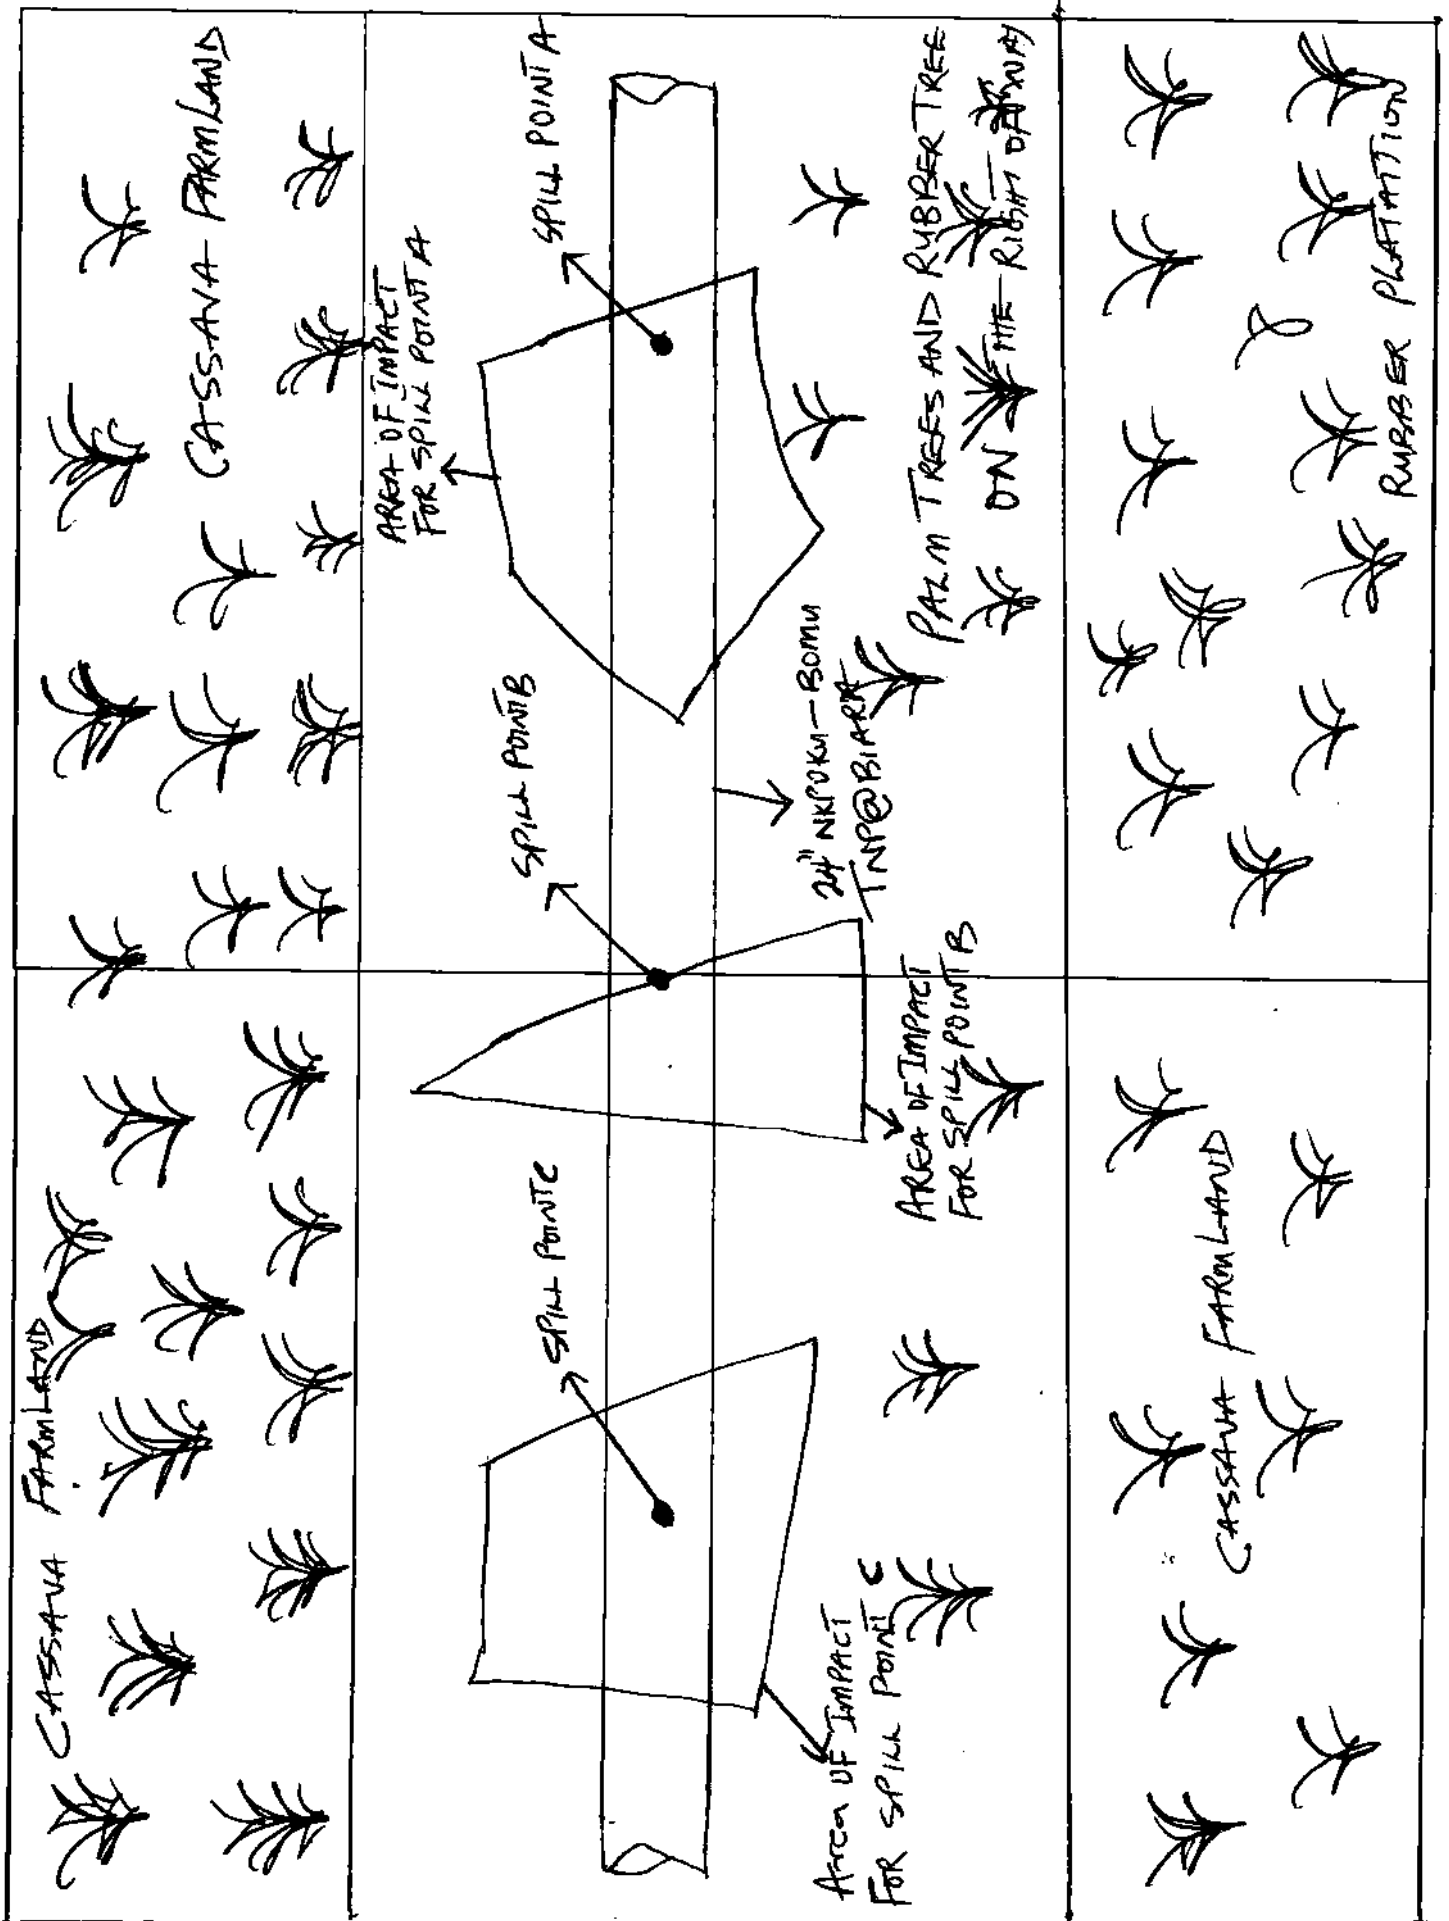 CASSAVA FARMLAND
CASSAVA FARMLAND
AREA OF IMPACT
FOR SPILL POINT A
SPILL POINT A
SPILL POINT B
SPILL POINT C
24" NKPOKU-BOMU
TNP@BIARA
AREA OF IMPACT
FOR SPILL POINT B
Area OF IMPACT
FOR SPILL POINT C
PALM TREES AND RUBBER TREE
ON THE RIGHT OF WAY
CASSAVA FARMLAND
RUBBER PLATATTION